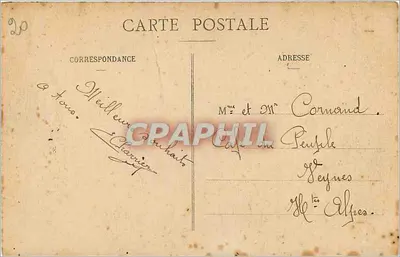 20
CARTE POSTALE
CORRESPONDANCE
ADRESSE
Meilleurs souhaits
à tous.
Charrier
Mme et Mr Cornand
Café du Peuple
Veynes
Htes Alpes.
CPAPHIL